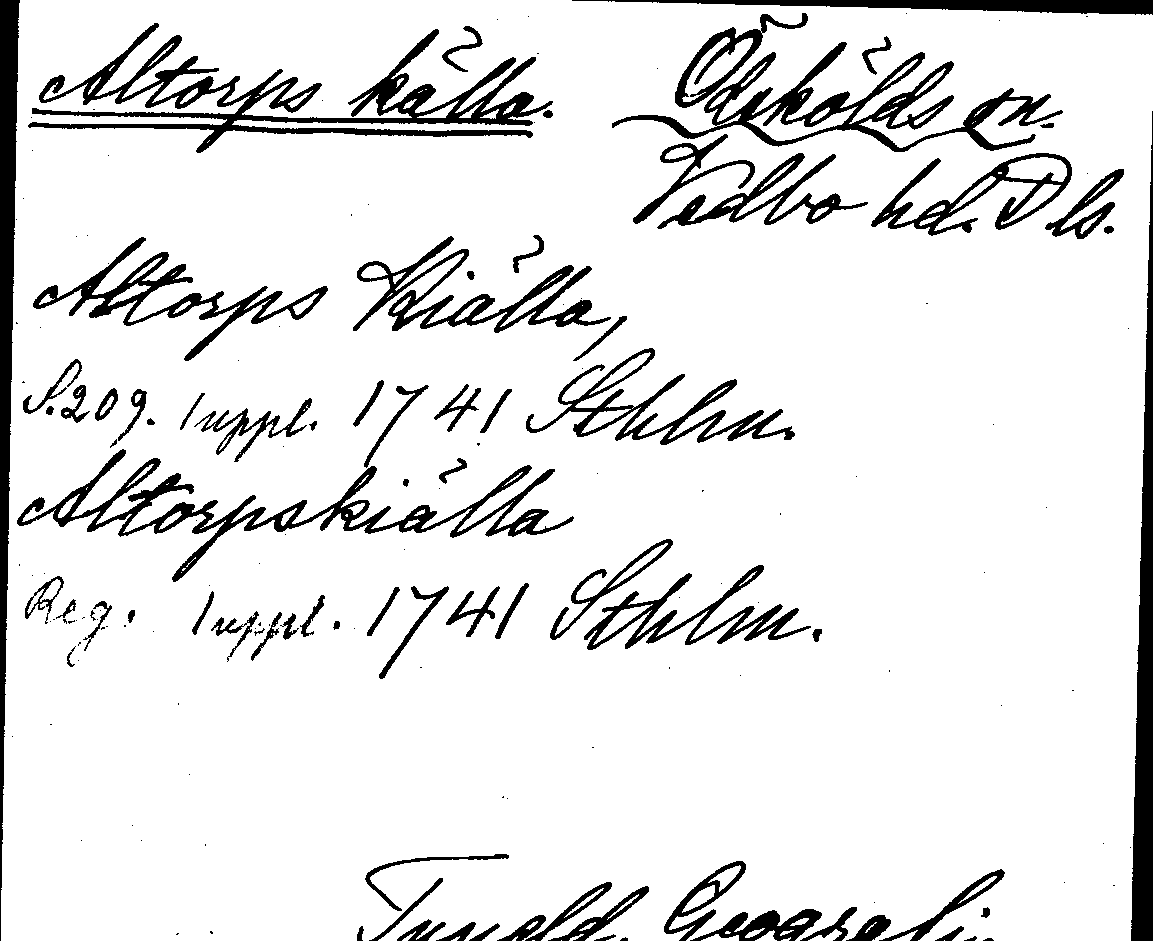 Altorps källa. Ödskölds sn.
Vedbo hd. Dls.
Altorps Kiälla,
S. 209. 1 uppl. 1741 Sthlm.
Altorpskiälla
Reg. 1 uppl. 1741 Sthlm.
Tuneld, Geografi